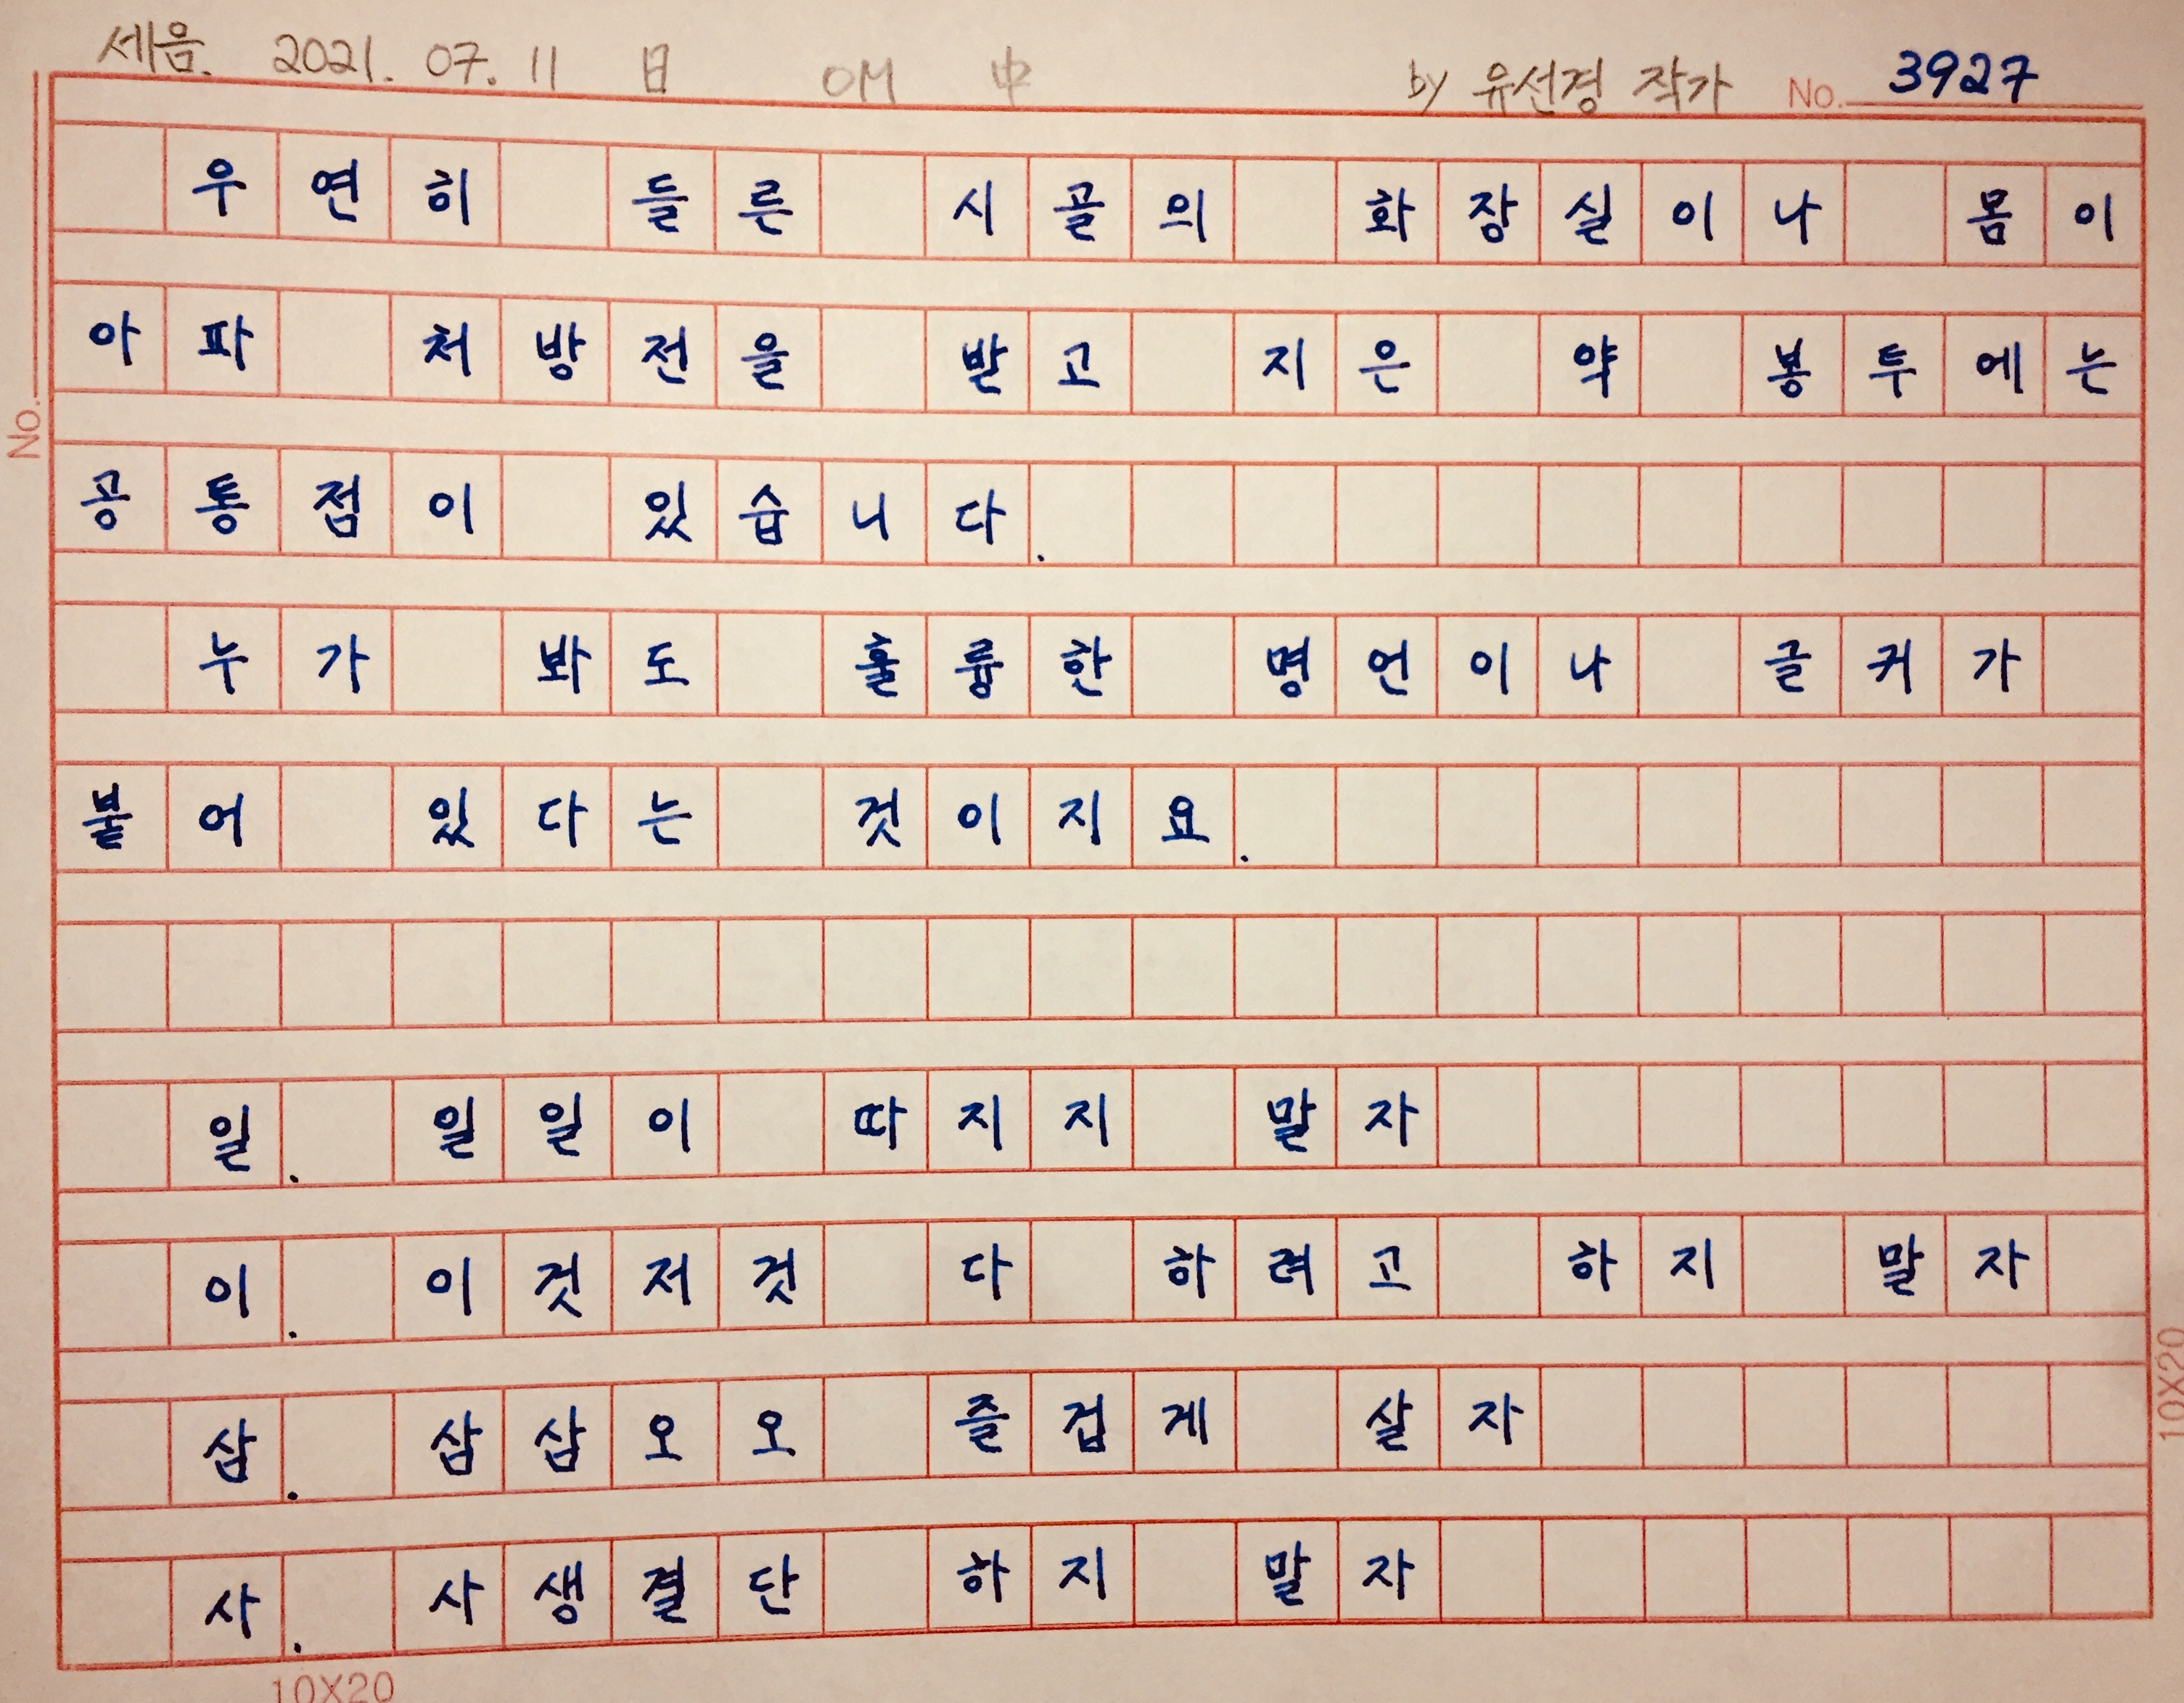 세음. 2021. 07. 11 日 OM 中 by 유선경 작가 No. 3927
우연히 들른 시골의 화장실이나 몸이
아파 처방전을 받고 지은 약 봉투에는
No.
공통점이 있습니다.
누가 봐도 훌륭한 명언이나 글귀가
붙어 있다는 것이지요.
일. 일일이 따지지 말자
이. 이것저것 다 하려고 하지 말자
삼. 삼삼오오 즐겁게 살자
10X20
사. 사생결단 하지 말자
10X20